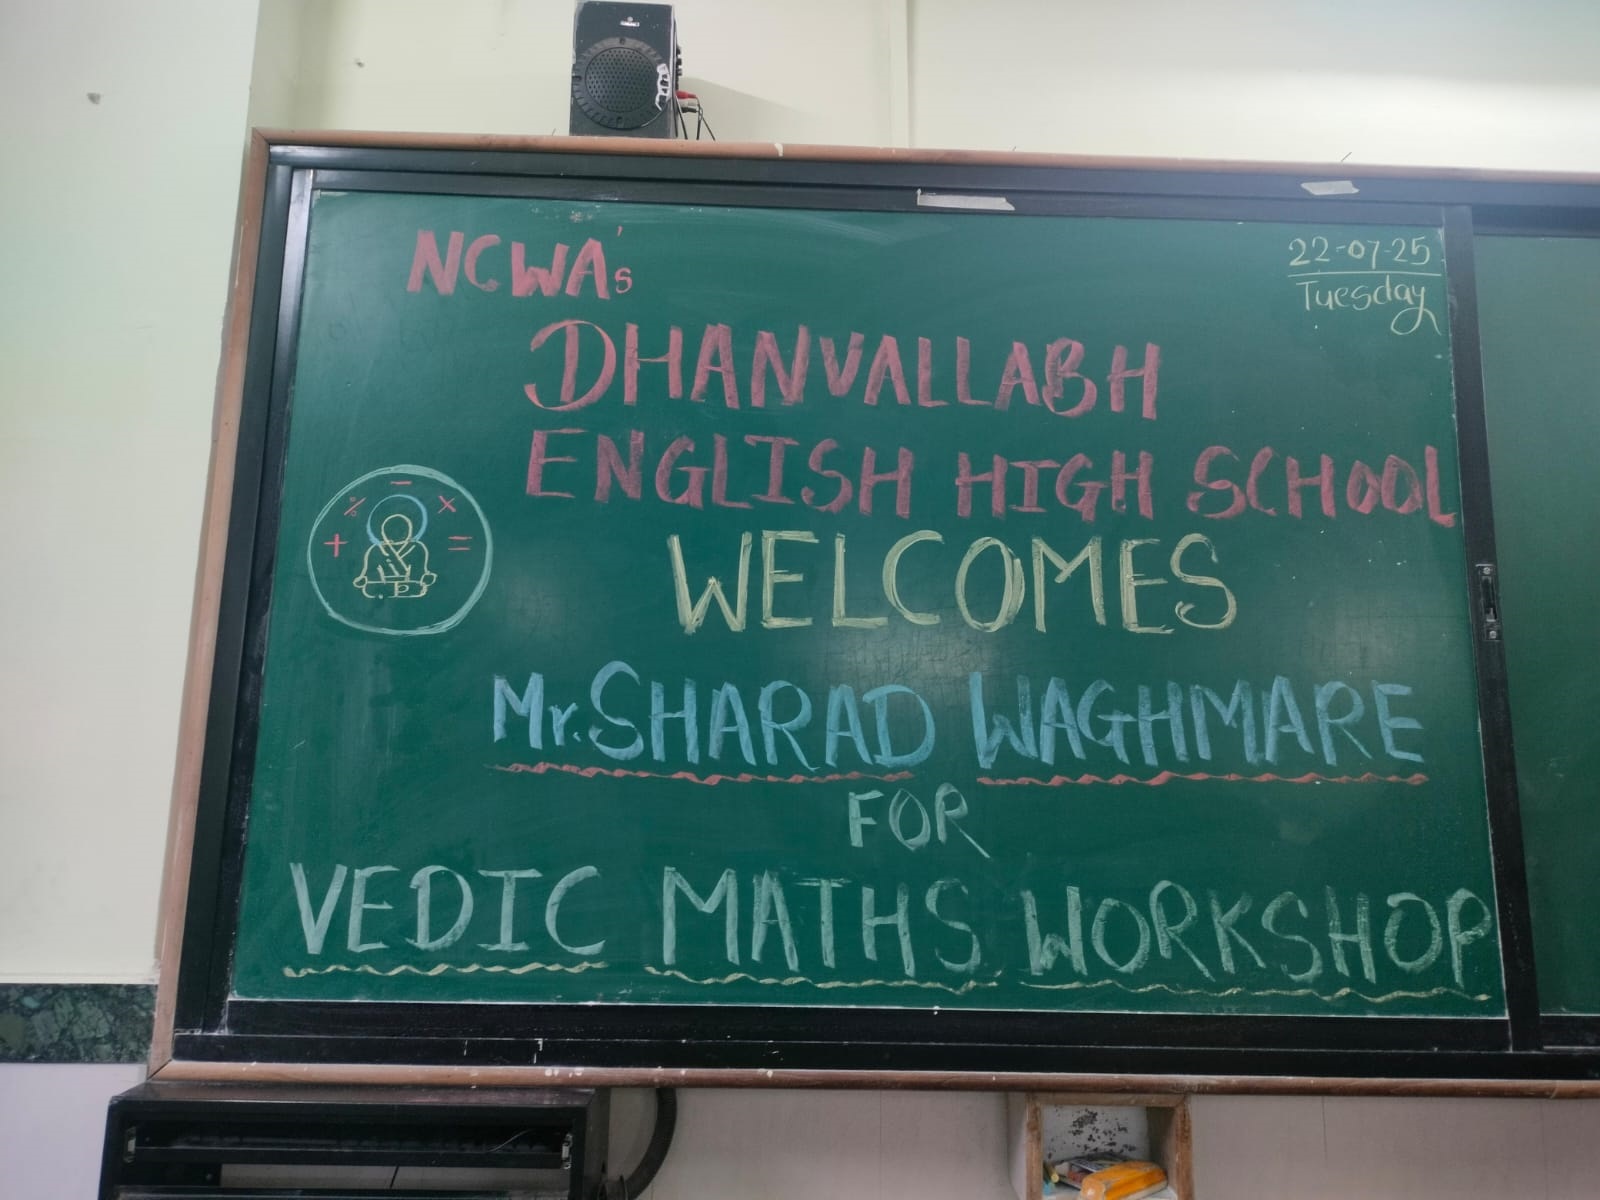 NCWA's
22-07-25
Tuesday
DHANVALLABH
ENGLISH HIGH SCHOOL
WELCOMES
Mr. SHARAD WAGHMARE
FOR
VEDIC MATHS WORKSHOP
+ % - × =